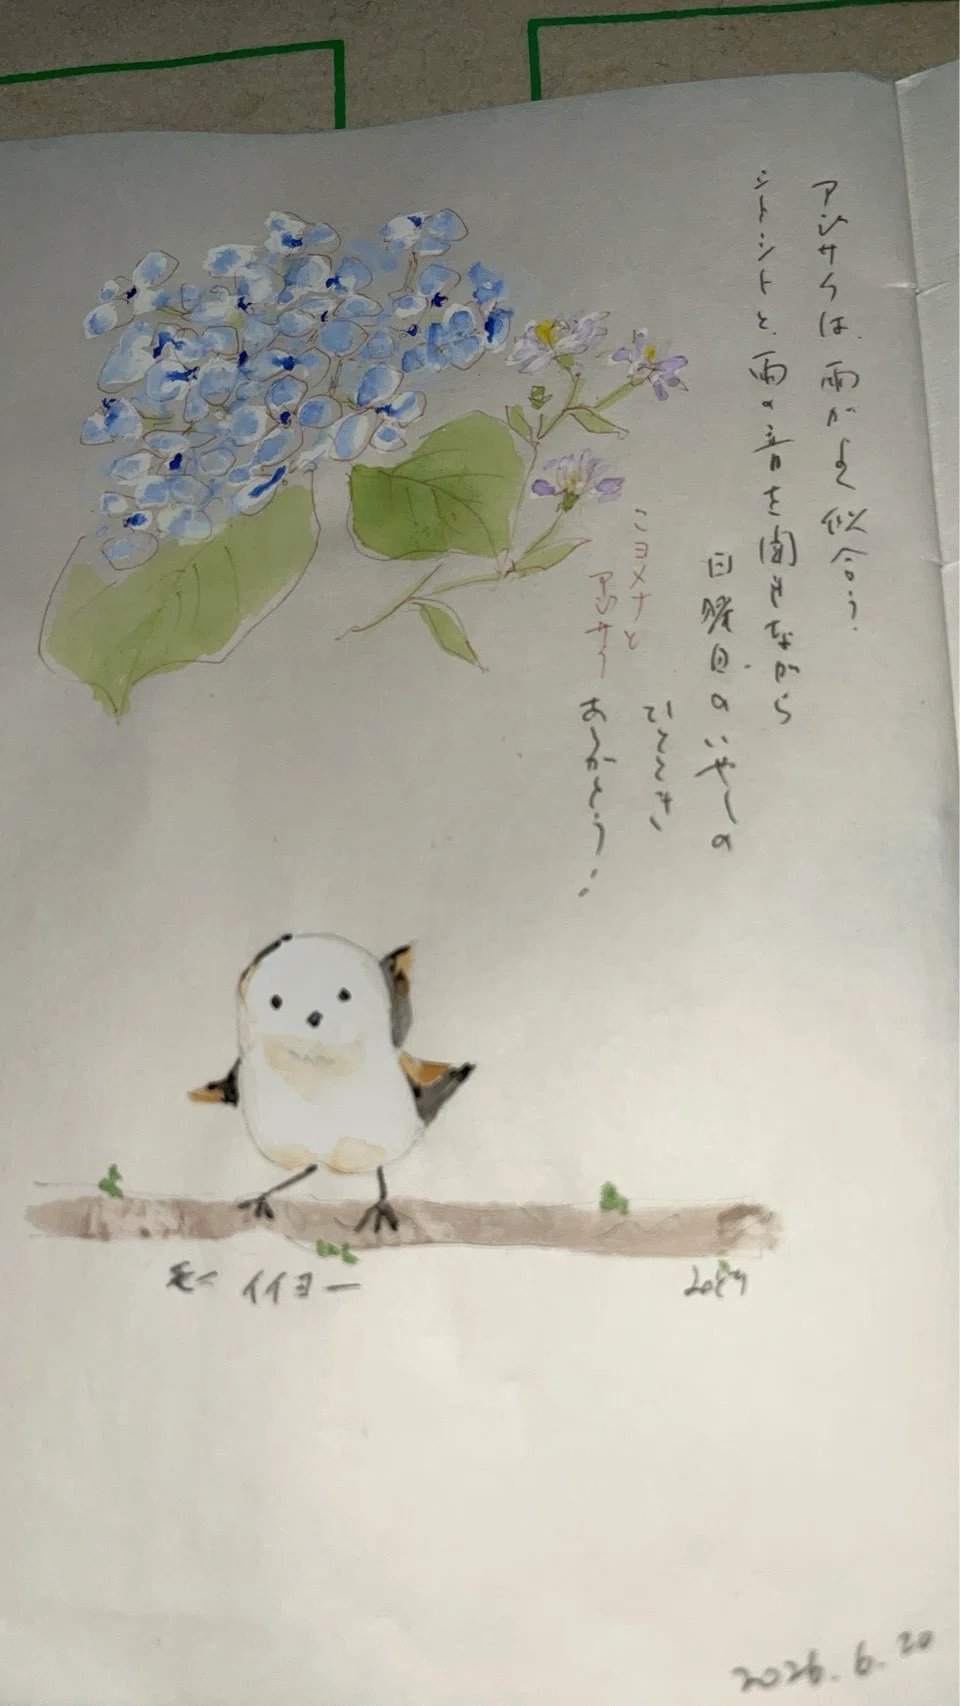 アジサイは、雨がよく似合う。
シトシトと、雨の音を聞きながら
日曜日のいやしの
ひととき
ありがとう!!
コヨメナと
アジサイ
イイヨー
2026.6.20